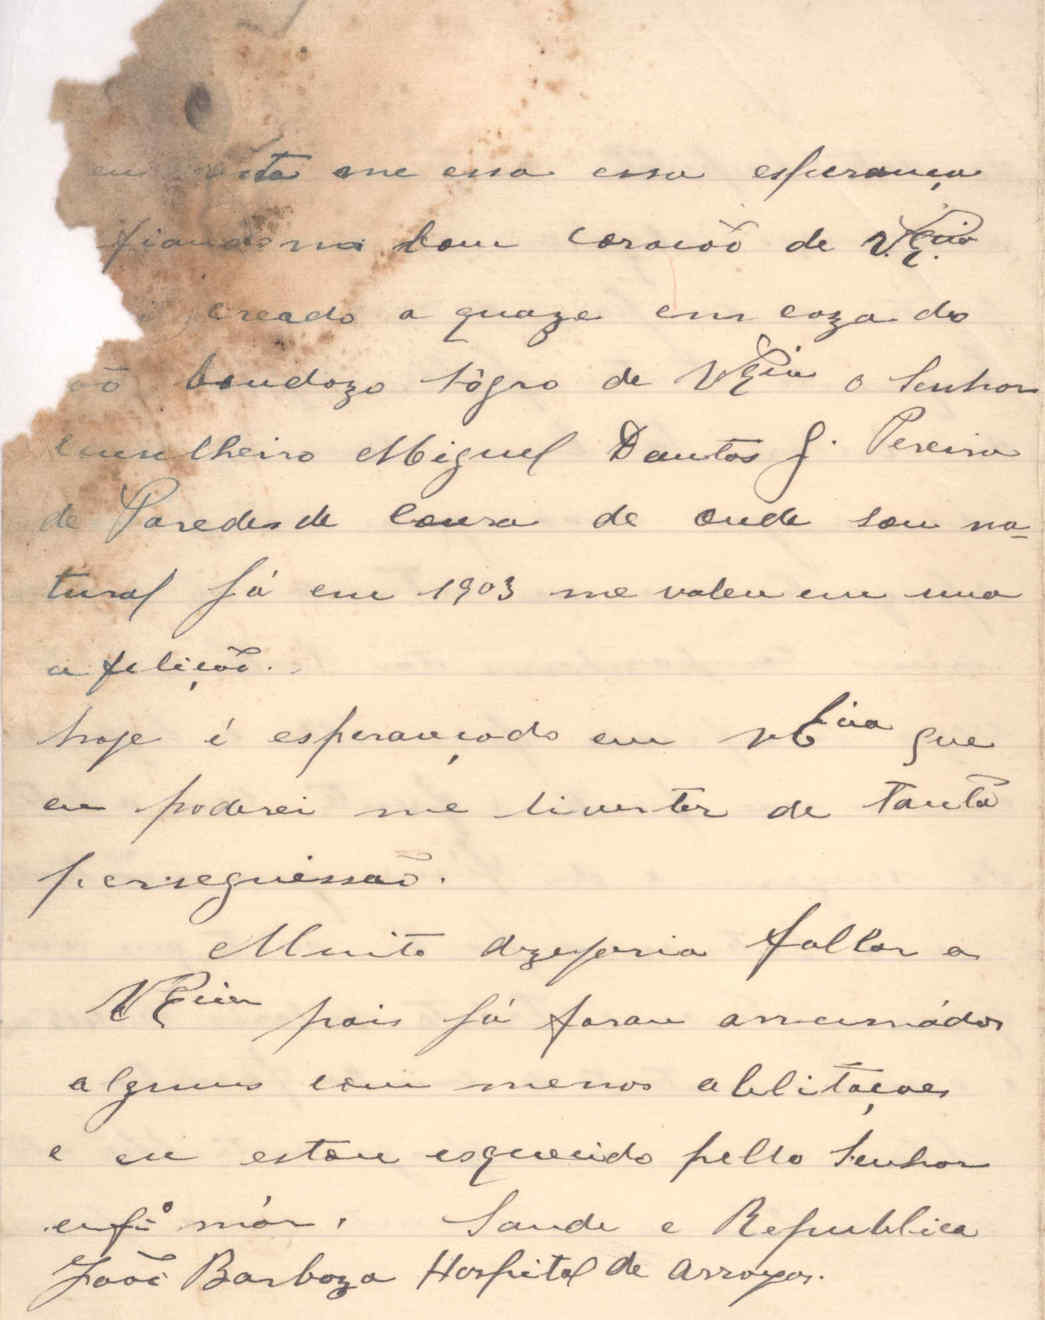 eu resta me essa essa esperança
fiando no bom coracoõ de V.Excia
creado a quaze em caza do
oõ boudozo sôgro de V Excia o Senhor
Counselheiro Miguel Dantos G. Pereira
de Paredes de Coura de onde sou na-
tural Já em 1903 me valeu em uma
afeliçoõ.
hoje é esperançado em V Excia que
eu poderei me liverter de tantã
perseguissaõ.
Muito dezejaria fallar a
V Excia pois já foram arrumádos
alguns com menos ablitaçoes
e eu estou esquecido pello Senhor
enfrº mór. Saude e Republica
Joaõ Barboza Hospital de Arroyos.